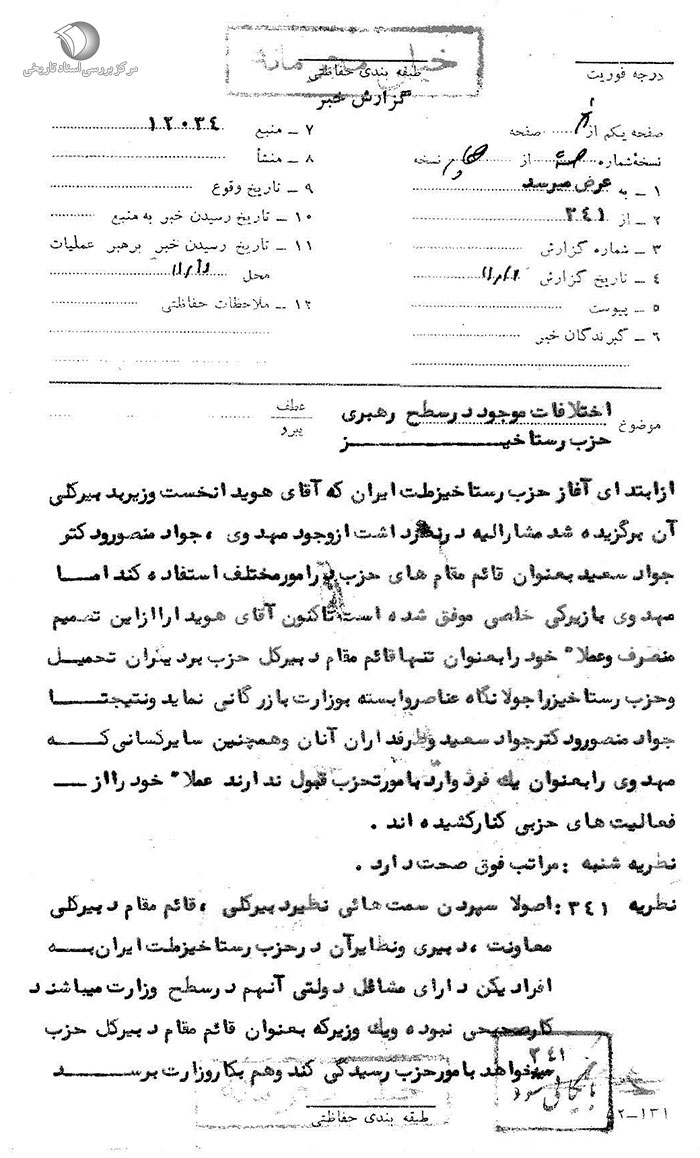 مرکز بررسی اسناد تاریخی
خیلی محرمانه
طبقه بندی حفاظتی
گزارش خبر
درجه فوریت
صفحه یکم از صفحه
نسخهٔ شماره از نسخه
۱ ــ به عرض میرسد
۲ ــ از ۳۴۱
۳ ــ شماره گزارش
۴ ــ تاریخ گزارش
۵ ــ پیوست
۶ ــ گیرندگان خبر
۷ ــ منبع ۱۲۰۳۴
۸ ــ منشأ
۹ ــ تاریخ وقوع
۱۰ ــ تاریخ رسیدن خبر به منبع
۱۱ ــ تاریخ رسیدن خبر برهبر عملیات
محل
۱۲ ــ ملاحظات حفاظتی
موضوع اختلافات موجود در سطح رهبری
حزب رستاخیز
عطف
پیرو
از ابتدای آغاز حزب رستاخیز ملت ایران که آقای هویدا نخست وزیر به دبیرکلی
آن برگزیده شد مشارالیه در نظر داشت از وجود مهدوی ، جواد منصور و دکتر
جواد سعید بعنوان قائم مقام های حزب در امور مختلف استفاده کند اما
مهدوی با زیرکی خاصی موفق شده است تاکنون آقای هویدا را از این تصمیم
منصرف و عملا" خود را بعنوان تنها قائم مقام دبیرکل حزب بر دیگران تحمیل
و حزب رستاخیز را جولانگاه عناصر وابسته بوزارت بازرگانی نماید و نتیجتا
جواد منصور و دکتر جواد سعید و طرفداران آنان و همچنین سایر کسانی که
مهدوی را بعنوان یک فرد وارد بامور تحزب قبول ندارند عملا" خود را از
فعالیت های حزبی کنار کشیده اند .
نظریه شنبه : مراتب فوق صحت دارد .
نظریه ۳۴۱ : اصولا سپردن سمت هائی نظیر دبیرکلی ، قائم مقام دبیرکلی
معاونت ، دبیری و نظایر آن در حزب رستاخیز ملت ایران به
افرادیکه دارای مشاغل دولتی آنهم در سطح وزارت میباشند
کار صحیحی نبوده و یک وزیر که بعنوان قائم مقام دبیرکل حزب
میخواهد بامور حزب رسیدگی کند و هم بکار وزارت برسد
۳۴۱
بایگانی شود
طبقه بندی حفاظتی